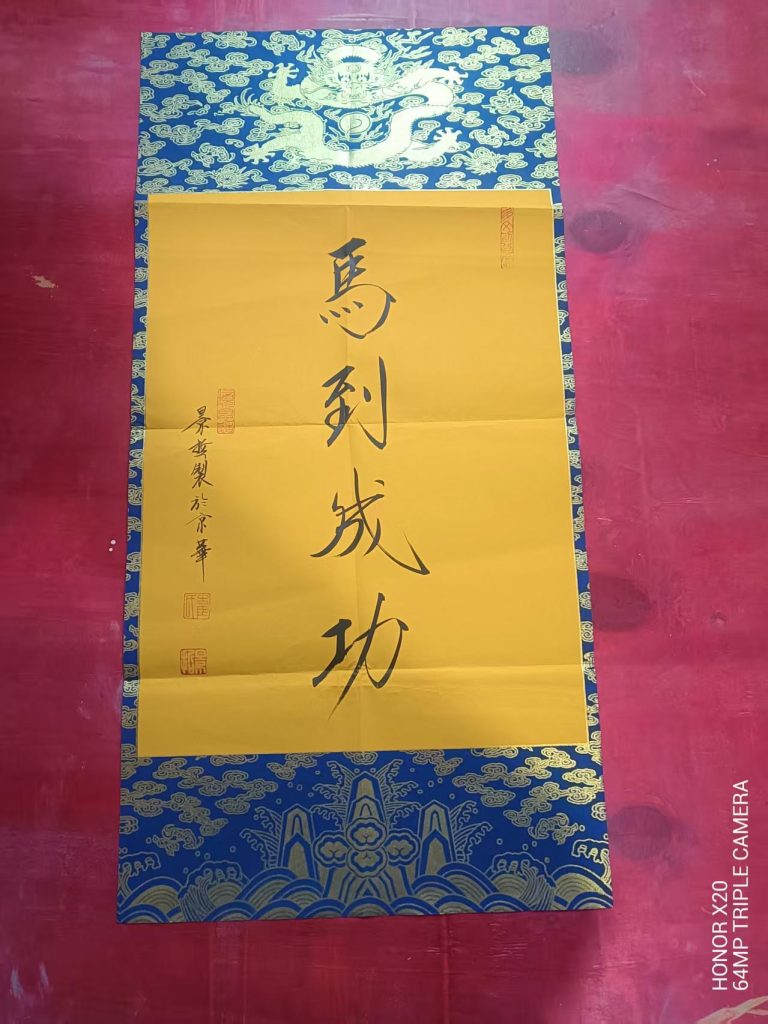 馬到成功
景哲製於京華
HONOR X20
64MP TRIPLE CAMERA